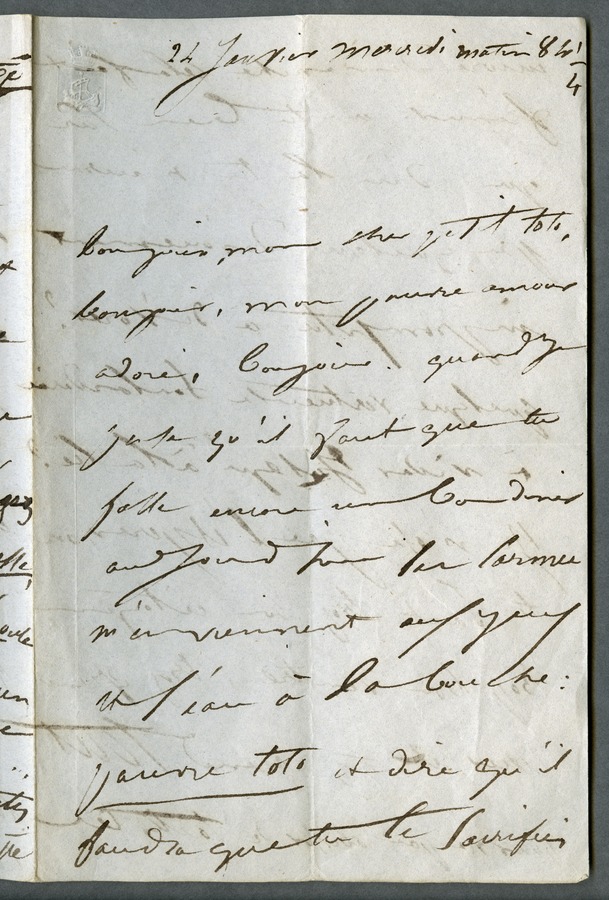 24 Janvier mercredi matin 8h 1/4
bonjour, mon cher petit toto,
bonjour, mon pauvre amour
adoré, bonjour. quand je
pense qu'il faut que tu
fasse encore un bon diner
aujourd'hui les larmes
m'en viennent aux yeux
et l'eau à la bouche :
pauvre toto et dire qu'il
faudra que tu te sacrifies